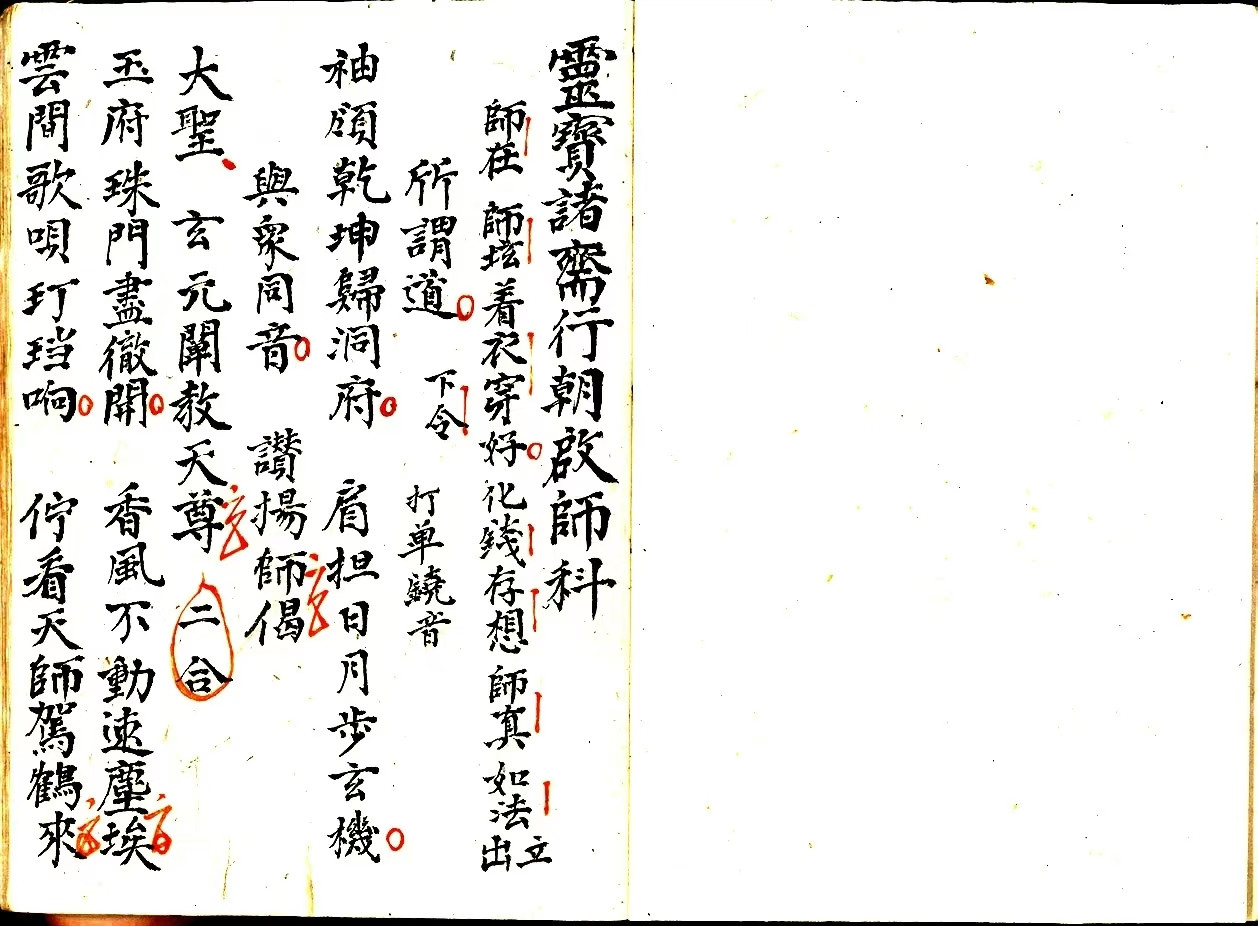 靈寶諸齋行朝啟師科
師在 師坛着衣穿好化錢存想師真如法立出
所謂道 下令 打单鐃音
袖頎乾坤歸洞府 肩担日月步玄機
與衆同音 讚揚師偈
大聖 玄元闡教天尊 二合
玉府珠門盡徹開 香風不動速塵埃
雲間歌唄玎珰响 佇看天師駕鶴來